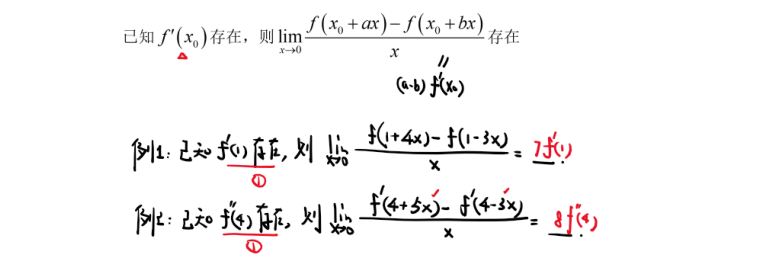 已知 f′(x₀) 存在，则 lim x→0 (f(x₀+ax)−f(x₀+bx))/x 存在
=
(a-b) f′(x₀)
例1：已知 f′(1) 存在, 则 lim x→0 (f(1+4x)−f(1−3x))/x = 7f′(1)
①
例2：已知 f″(4) 存在, 则 lim x→0 (f′(4+5x)−f′(4−3x))/x = 8f″(4)
①